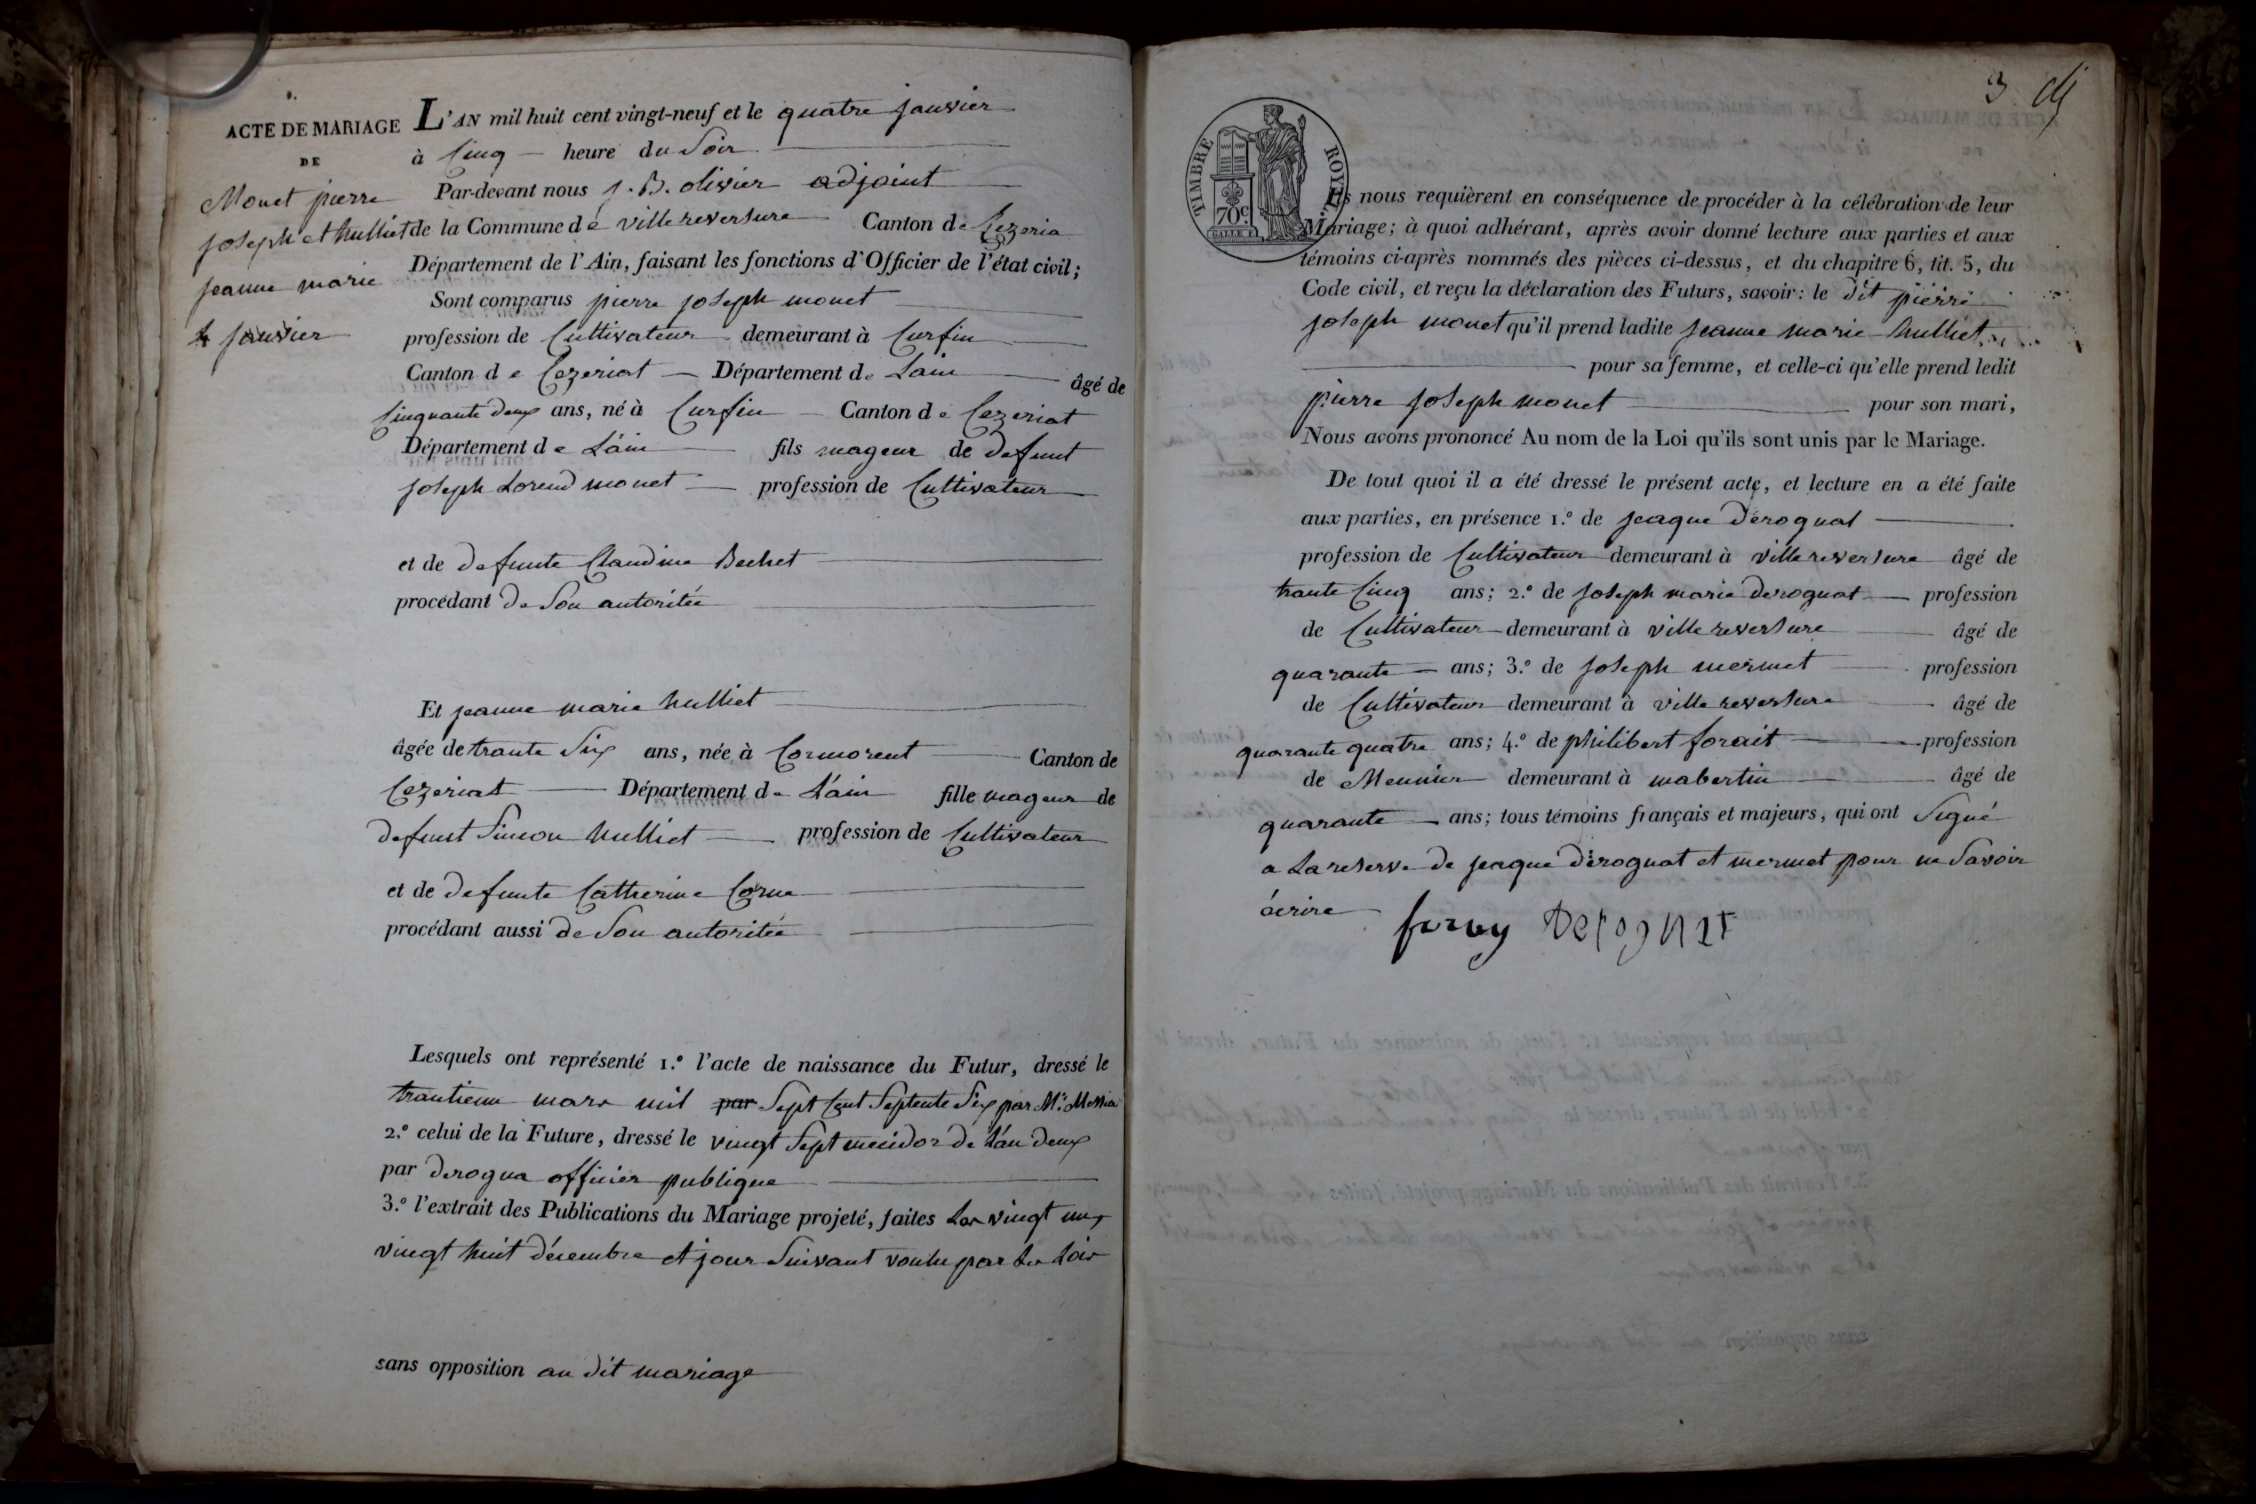 ACTE DE MARIAGE
DE
Monet pierre
joseph et hulliet
jeanne marie
4 janvier
L'AN mil huit cent vingt-neuf et le quatre janvier
à Cinq heure du Soir
Par-devant nous j. B. olivier adjoint
de la Commune de villereversure Canton de Cezeria
Département de l'Ain, faisant les fonctions d'Officier de l'état civil;
Sont comparus pierre joseph monet
profession de Cultivateur demeurant à Curfin
Canton de Cezeriat Département de Lain âgé de
Cinquante deux ans, né à Curfin Canton de Cezeriat
Département de L'ain fils mageur de defunt
joseph Lorend monet profession de Cultivateur
et de defunte Claudine Bechet
procédant de Son autoritée
Et jeanne marie hulliet
âgée de trante Six ans, née à Cormorent Canton de
Cezeriat Département de L'ain fille mageur de
defunt Simon hulliet profession de Cultivateur
et de defunte Catherine Corne
procédant aussi de Son autoritée
Lesquels ont représenté 1.° l'acte de naissance du Futur, dressé le
trantieme mars mil par Sept Cent Septente Six par Mr
2.° celui de la Future, dressé le vingt Sept mecidor de L'an deux
par derogna officier publique
3.° l'extrait des Publications du Mariage projeté, faites Les vingt un,
vingt huit décembre et jour Suivant voulu par La Loix
sans opposition au dit mariage
3
TIMBRE ROYAL
70c
Ils nous requièrent en conséquence de procéder à la célébration de leur
Mariage; à quoi adhérant, après avoir donné lecture aux parties et aux
témoins ci-après nommés des pièces ci-dessus, et du chapitre 6, tit. 5, du
Code civil, et reçu la déclaration des Futurs, savoir: le dit pierre
joseph monet qu'il prend ladite jeanne marie hulliet
pour sa femme, et celle-ci qu'elle prend ledit
pierre joseph monet pour son mari,
Nous avons prononcé Au nom de la Loi qu'ils sont unis par le Mariage.
De tout quoi il a été dressé le présent acte, et lecture en a été faite
aux parties, en présence 1.° de jeaque dérognat
profession de Cultivateur demeurant à villereversure âgé de
trante Cinq ans; 2.° de joseph marie derognat profession
de Cultivateur demeurant à villereversure âgé de
quarante ans; 3.° de joseph mermet profession
de Cultivateur demeurant à villereversure âgé de
quarante quatre ans; 4.° de philibert forait profession
de Meunier demeurant à mabertin âgé de
quarante ans; tous témoins français et majeurs, qui ont Signé
a La reserve de jeaque dérognat et mermet pour ne Savoir
écrire
foray Derognat